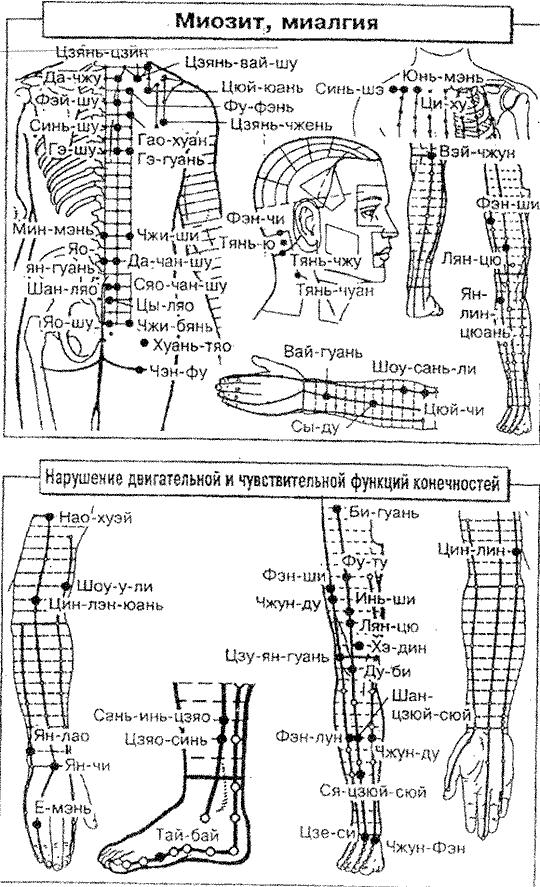 Миозит, миалгия
Цзянь-цзин
Цзянь-вай-шу
Да-чжу
Цюй-юань
Фэй-шу
Фу-фэнь
Синь-шу
Цзянь-чжень
Гао-хуан
Гэ-шу
Гэ-гуань
Мин-мэнь
Чжи-ши
Яо-
ян-гуань
Да-чан-шу
Шан-ляо
Сяо-чан-шу
Цы-ляо
Яо-шу
Чжи-бянь
Хуань-тяо
Чэн-фу
Фэн-чи
Тянь-ю
Тянь-чжу
Тянь-чуан
Синь-шэ
Юнь-мэнь
Ци-ху
Вэй-чжун
Фэн-ши
Лян-цю
Ян-
лин-
цюань
Вай-гуань
Шоу-сань-ли
Цюй-чи
Сы-ду
Нарушение двигательной и чувствительной функций конечностей
Нао-хуэй
Шоу-у-ли
Цин-лэн-юань
Ян-лао
Ян-чи
Е-мэнь
Сань-инь-цзяо
Цзяо-синь
Тай-бай
Би-гуань
Фу-ту
Фэн-ши
Чжун-ду
Инь-ши
Лян-цю
Хэ-дин
Цзу-ян-гуань
Ду-би
Шан-
цзюй-сюй
Фэн-лун
Чжун-ду
Ся-цзюй-сюй
Цзе-си
Чжун-Фэн
Цин-лин